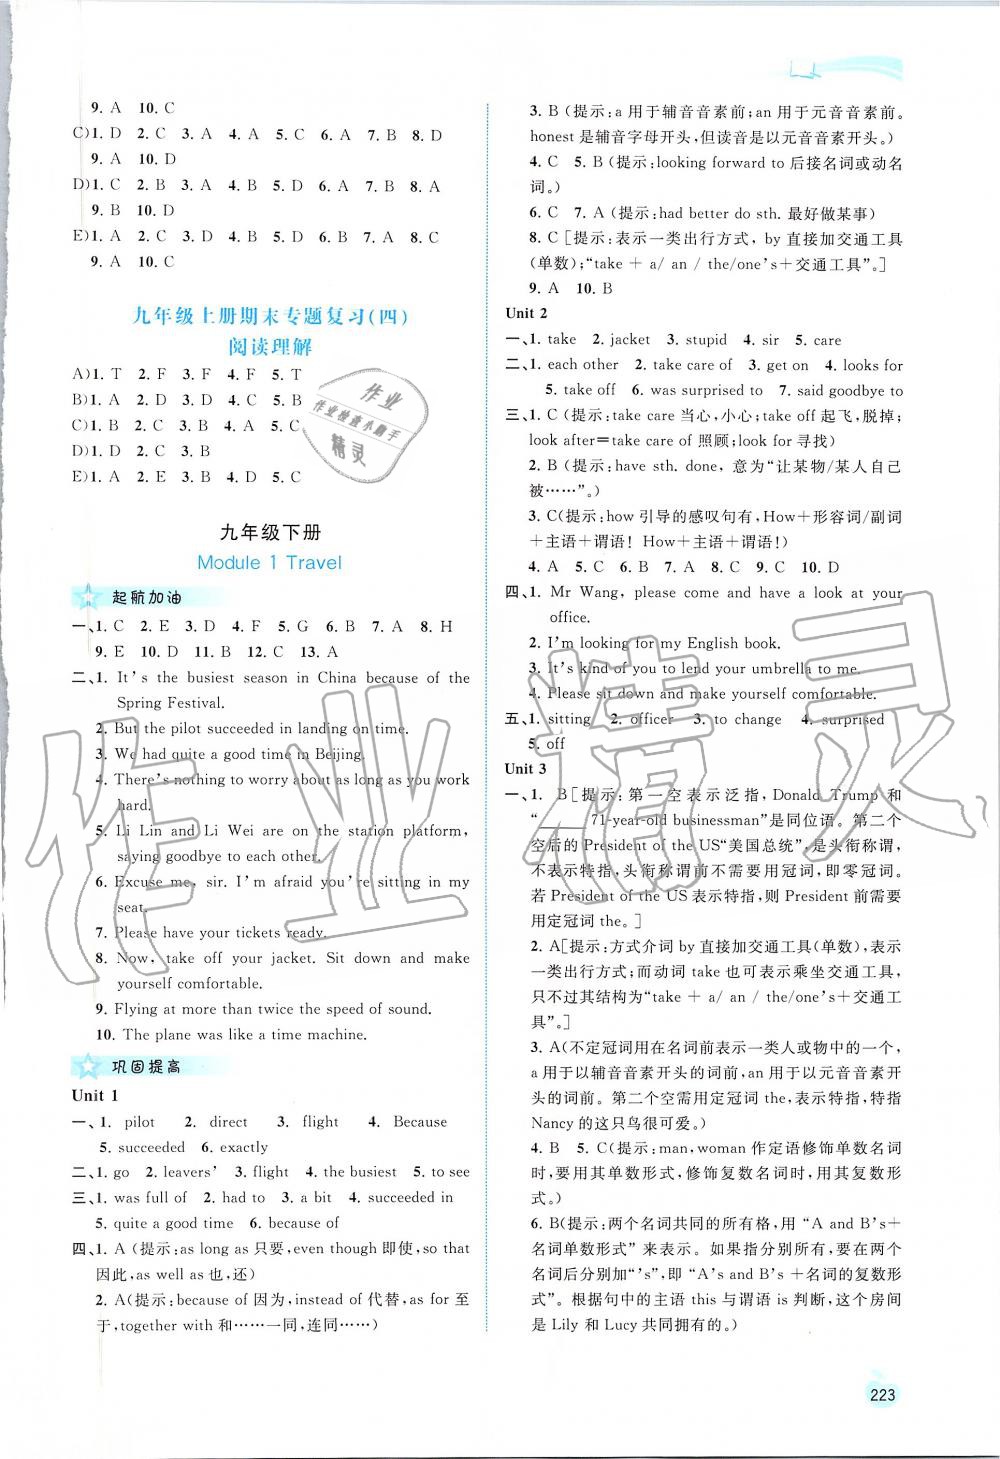 9. A  10. C
C)1. D  2. C  3. A  4. A  5. C  6. A  7. B  8. D
9. A  10. D
D)1. C  2. B  3. A  4. B  5. D  6. A  7. B  8. A
9. B  10. D
E)1. A  2. C  3. D  4. D  5. B  6. A  7. B  8. C
9. A  10. C
九年级上册期末专题复习(四)
阅读理解
A)1. T  2. F  3. F  4. F  5. T
B)1. A  2. D  3. C  4. A  5. B
C)1. B  2. A  3. D  4. C  5. B
D)1. D  2. A  3. C  4. B
E)1. A  2. B  3. B  4. D  5. C
九年级下册
Module 1 Travel
起航加油
一、1. C  2. E  3. D  4. F  5. G  6. B  7. A  8. H
9. E  10. D  11. B  12. C  13. A
二、1. It's the busiest season in China because of the
Spring Festival.
2. But the pilot succeeded in landing on time.
3. We had quite a good time in Beijing.
4. There's nothing to worry about as long as you work
hard.
5. Li Lin and Li Wei are on the station platform,
saying goodbye to each other.
6. Excuse me, sir. I'm afraid you're sitting in my
seat.
7. Please have your tickets ready.
8. Now, take off your jacket. Sit down and make
yourself comfortable.
9. Flying at more than twice the speed of sound.
10. The plane was like a time machine.
巩固提高
Unit 1
一、1. pilot  2. direct  3. flight  4. Because
5. succeeded  6. exactly
二、1. go  2. leavers'  3. flight  4. the busiest  5. to see
三、1. was full of  2. had to  3. a bit  4. succeeded in
5. quite a good time  6. because of
四、1. A (提示:as long as 只要,even though 即使,so that
因此,as well as 也,还)
2. A(提示:because of 因为,instead of 代替,as for 至
于,together with 和……一同,连同……)
3. B (提示:a 用于辅音音素前;an 用于元音音素前。
honest 是辅音字母开头,但读音是以元音音素开头。)
4. C  5. B (提示:looking forward to 后接名词或动名
词。)
6. C  7. A (提示:had better do sth. 最好做某事)
8. C [提示:表示一类出行方式,by 直接加交通工具
(单数);“take + a/ an / the/one's+交通工具”。]
9. A  10. B
Unit 2
一、1. take  2. jacket  3. stupid  4. sir  5. care
二、1. each other  2. take care of  3. get on  4. looks for
5. take off  6. was surprised to  7. said goodbye to
三、1. C (提示:take care 当心,小心;take off 起飞,脱掉;
look after=take care of 照顾;look for 寻找)
2. B (提示:have sth. done, 意为“让某物/某人自己
被……”。)
3. C(提示:how 引导的感叹句有,How+形容词/副词
+主语+谓语! How+主语+谓语!)
4. A  5. B  6. A  7. C  8. C  9. C  10. D
四、1. Mr Wang, please come and have a look at your
office.
2. I'm looking for my English book.
3. It's kind of you to lend your umbrella to me.
4. Please sit down and make yourself comfortable.
五、1. sitting  2. officer  3. to change  4. surprised
5. off
Unit 3
一、1. B[提示:第一空表示泛指,Donald Trump 和
“____ 71-year-old businessman”是同位语。第二个
空后的 President of the US“美国总统”,是头衔称谓,
不表示特指,头衔称谓前不需要用冠词,即零冠词。
若 President of the US 表示特指,则 President 前需要
用定冠词 the。]
2. A[提示:方式介词 by 直接加交通工具(单数),表示
一类出行方式;而动词 take 也可表示乘坐交通工具,
只不过其结构为“take + a/ an / the/one's+交通工
具”。]
3. A(不定冠词用在名词前表示一类人或物中的一个,
a 用于以辅音音素开头的词前,an 用于以元音音素开
头的词前。第二个空需用定冠词 the,表示特指,特指
Nancy 的这只鸟很可爱。)
4. B  5. C(提示:man,woman 作定语修饰单数名词
时,要用其单数形式,修饰复数名词时,用其复数形
式。)
6. B(提示:两个名词共同的所有格,用 “A and B's+
名词单数形式” 来表示。如果指分别所有,要在两个
名词后分别加“'s”,即 “A's and B's +名词的复数形
式”。根据句中的主语 this 与谓语 is 判断,这个房间
是 Lily 和 Lucy 共同拥有的。)
223
作业
作业检查小助手
精灵
作业精灵